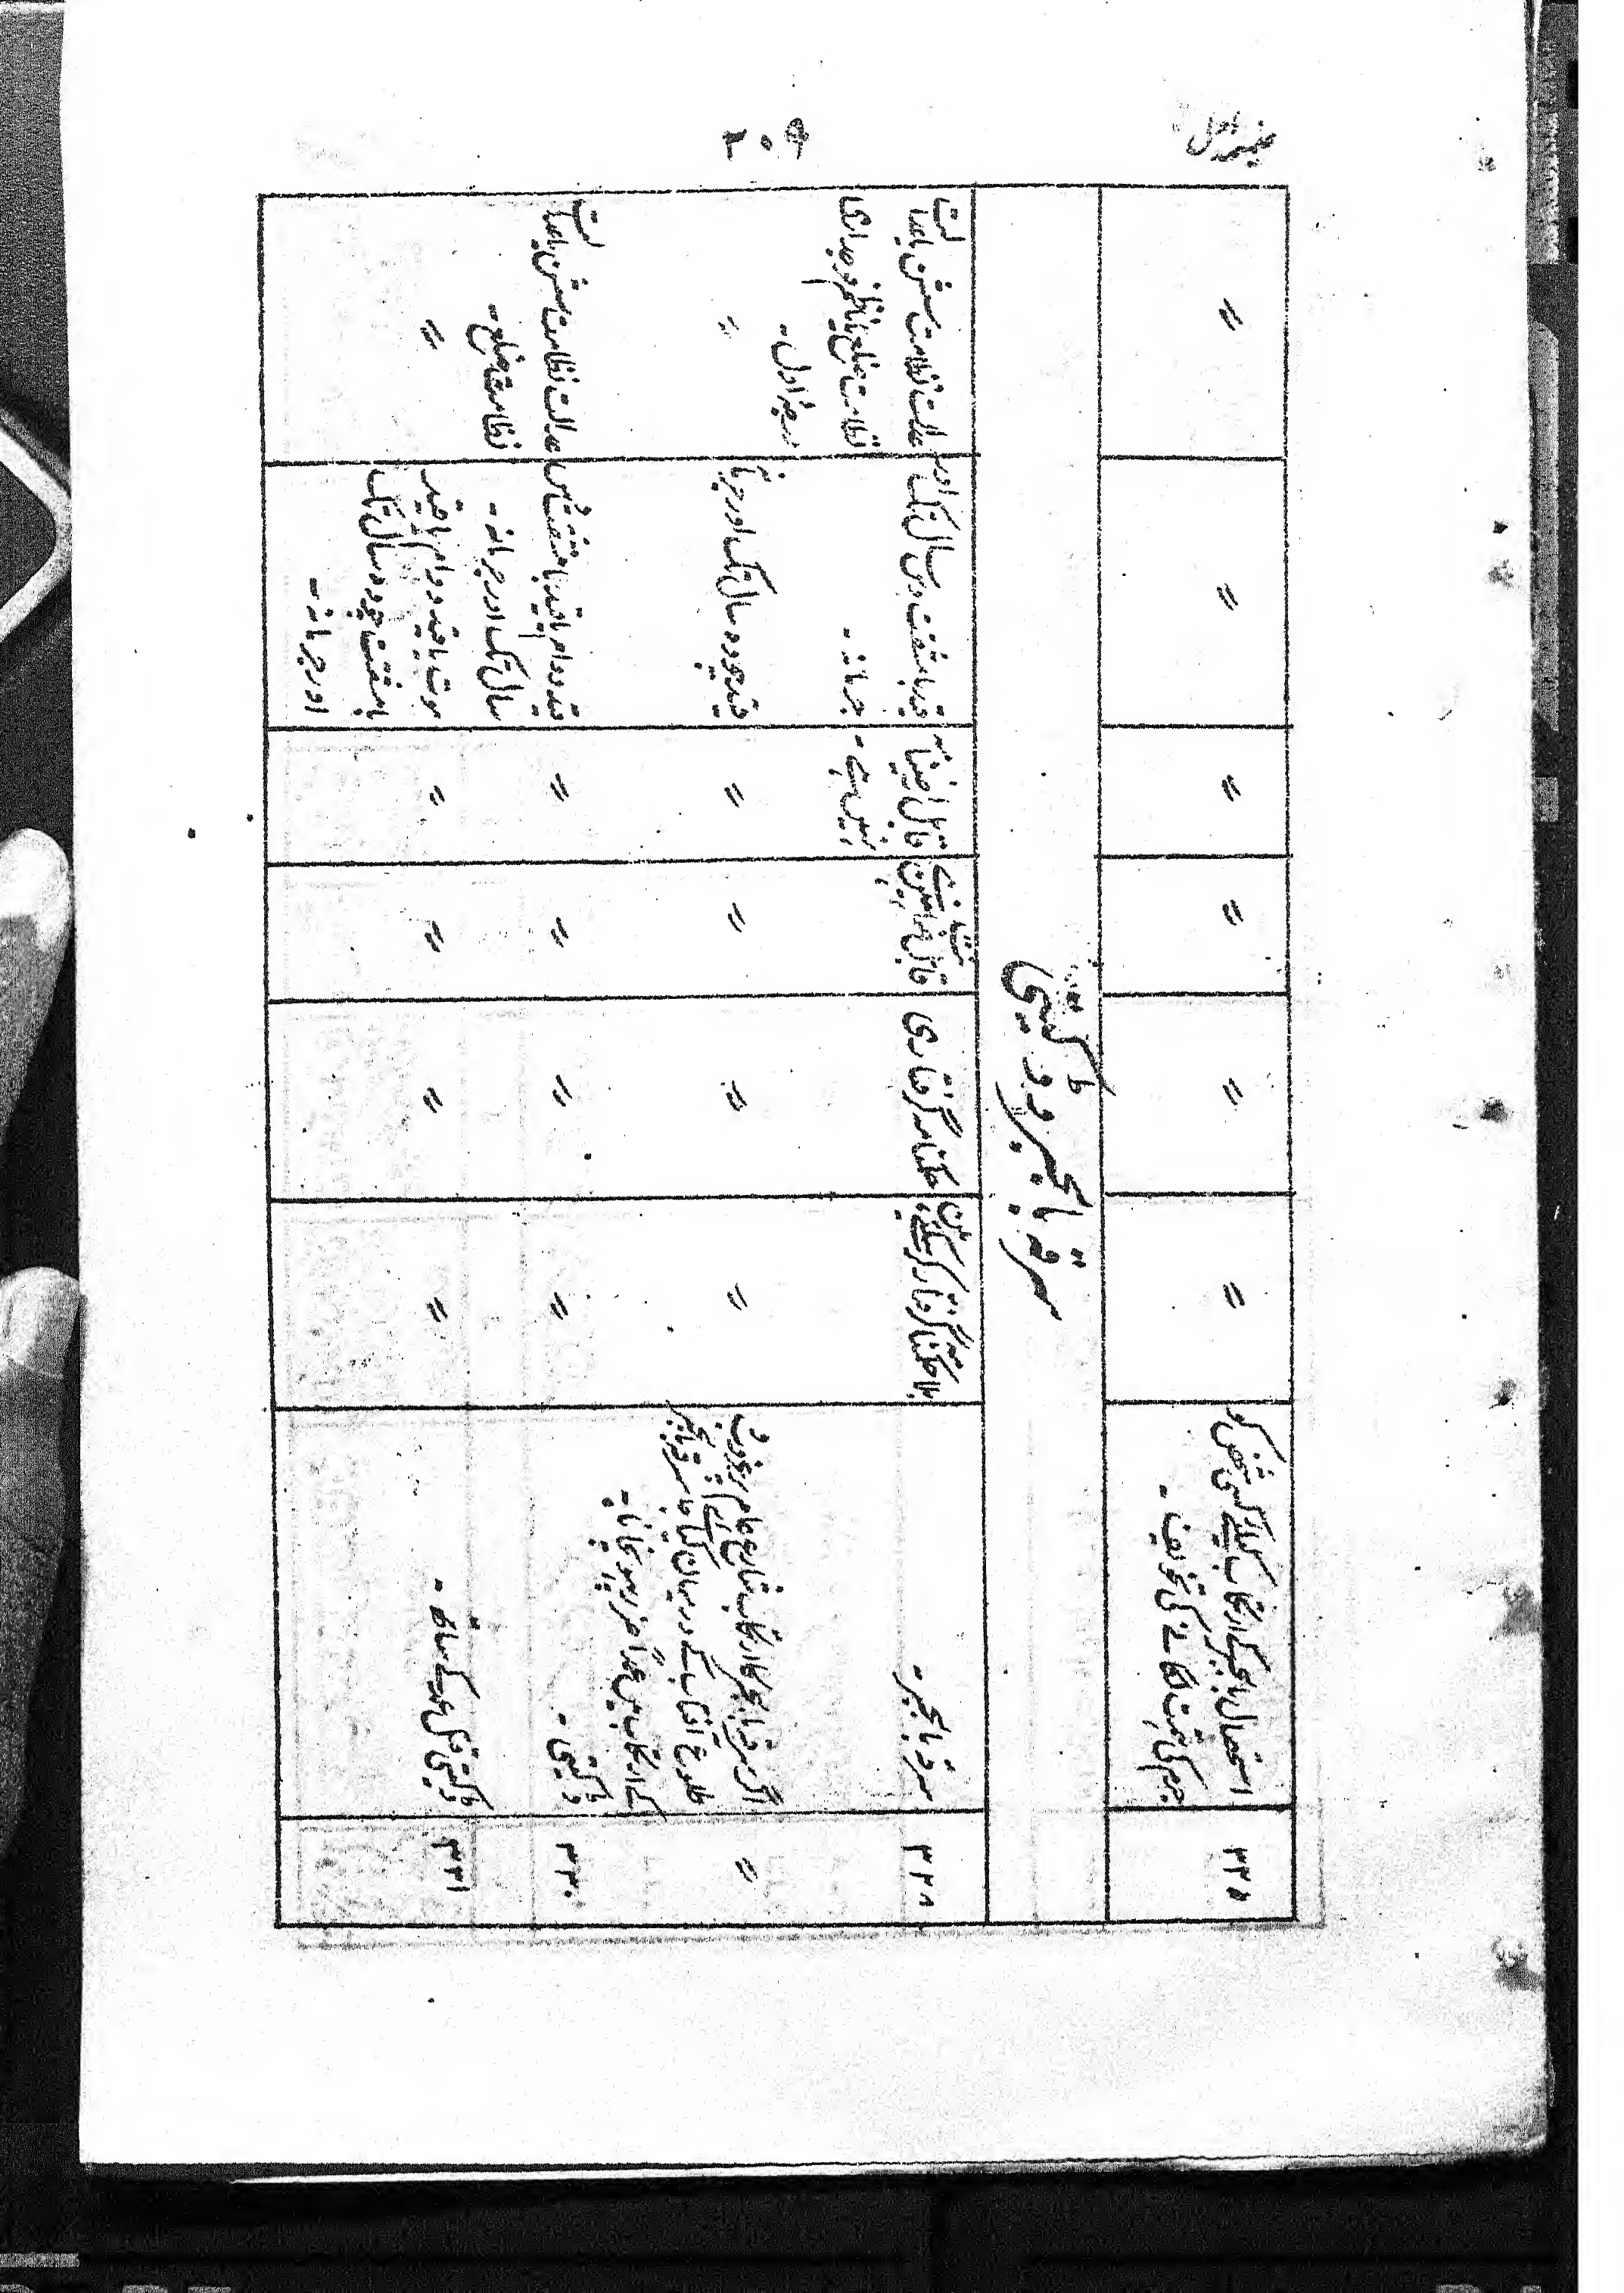 ضمیمہ اول
۲۰۹
۳۲۵
استحصال بالجبر کے ارتکاب کیلئے کسی شخص کو
جرم کی تہمت لگانے کی تخویف ۔
〃
〃
〃
〃
〃
〃
سرقہ بالجبر و ڈکیتی
۳۲۸
سرقہ بالجبر ۔
بلا حکمنامہ گرفتار کر سکتے ہیں
حکمنامہ گرفتاری
قابل ضمانت نہیں ہے
قابل راضینامہ
نہیں ہے ۔
قید بامشقت دس سال تک اور
جرمانہ ۔
عدالت نظامت سشن یا عدالت
نظامت ضلع یا ناظم فوجداری
درجہ اول ۔
〃
اگر سرقہ بالجبر کا ارتکاب شارع عام پر غروب و
طلوع آفتاب کے درمیان کیا جائے
〃
〃
〃
〃
قید چودہ سال تک اور جرمانہ
〃
۳۳۰
ڈکیتی ۔
〃
〃
〃
〃
قید دوام یا قید بامشقت دس
سال تک اور جرمانہ ۔
عدالت نظامت سشن یا عدالت
نظامت ضلع ۔
۳۳۱
ڈکیتی قتل عمد کے ساتھ ۔
〃
〃
〃
〃
موت یا قید دوام یا قید
بامشقت چودہ سال تک
اور جرمانہ ۔
〃